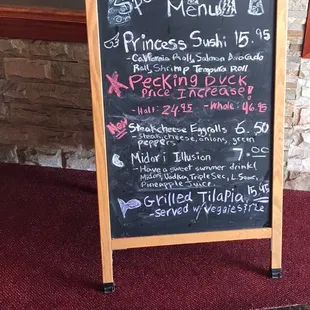 Menu
Princess Sushi 15.95
-California Roll, Salmon Avocado
Roll, Shrimp Tempura Roll
Pecking Duck
Price Increase!
-Half: 24.95 -Whole: 46.95
New Steak+cheese Eggrolls 6.50
-Steak, cheese, onions, green
peppers
Midori Illusion 7.00
-Have a sweet summer drink!
Midori, Vodka, Triple Sec, L. Sour,
Pineapple Juice.
Grilled Tilapia 15.45
-served w/ veggies+